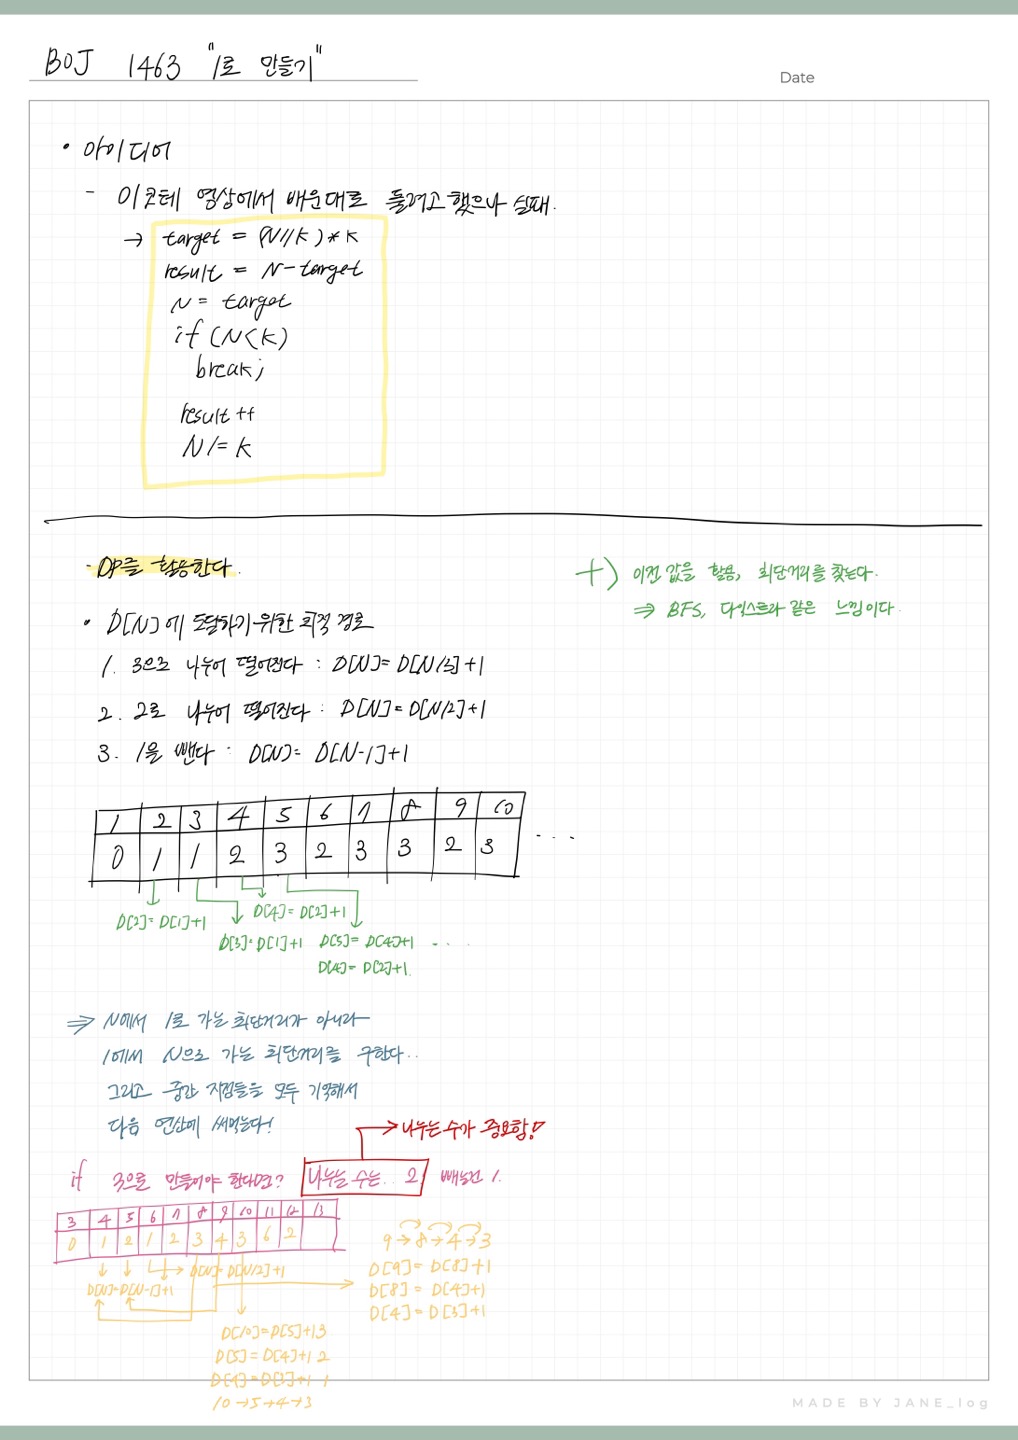 BOJ 1463 "1로 만들기"
Date
• 아이디어
- 이코테 영상에서 배운대로 풀려고 했으나 실패.
→ target = (N//K)*K
result = N-target
N = target
if (N<K)
break;
result ++
N /= K
- DP를 활용한다.
+) 이전 값을 활용, 최단거리를 찾는다.
⇒ BFS, 다익스트라 같은 느낌이다.
• D[N]에 도달하기 위한 최적 경로
1. 3으로 나누어 떨어진다 : D[N]= D[N/3]+1
2. 2로 나누어 떨어진다 : D[N]= D[N/2]+1
3. 1을 뺀다 : D[N]= D[N-1]+1
1 2 3 4 5 6 7 8 9 10
0 1 1 2 3 2 3 3 2 3 ...
D[2]= D[1]+1
D[4]= D[2]+1
D[3]= D[1]+1 D[5]= D[4]+1 ....
D[4]= D[2]+1.
⇒ N에서 1로 가는 최단거리가 아니라
1에서 N으로 가는 최단거리를 구한다..
그리고 중간 지점들을 모두 기억해서
다음 연산에 써먹는다!
→ 나누는 수가 중요함!
if 3으로 만들어야 한다면? 나누는 수는.. 2 빼는건 1.
3 4 5 6 7 8 9 10 11 12 13
0 1 2 1 2 3 4 3 6 2
9→8→4→3
→ D[N]= D[N/2]+1
D[N]=D[N-1]+1
D[9]= D[8]+1
D[8]= D[4]+1
D[4]= D[3]+1
D[10]=D[5]+1 3
D[5]= D[4]+1 2
D[4]=D[3]+1 1
10→5→4→3
MADE BY JANE_log